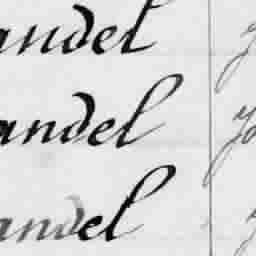 andel
andel
andel